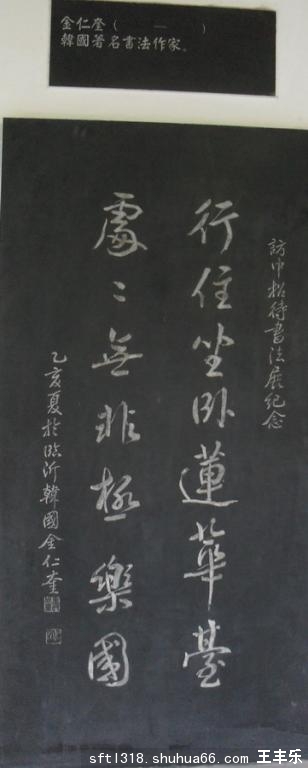 金仁奎（ — ）
韓國著名書法作家。
訪中招待書法展紀念
行住坐卧蓮華臺
處〻無非極樂國
乙亥夏於臨沂韓國金仁奎
sftl318.shuhua66.com/王丰乐